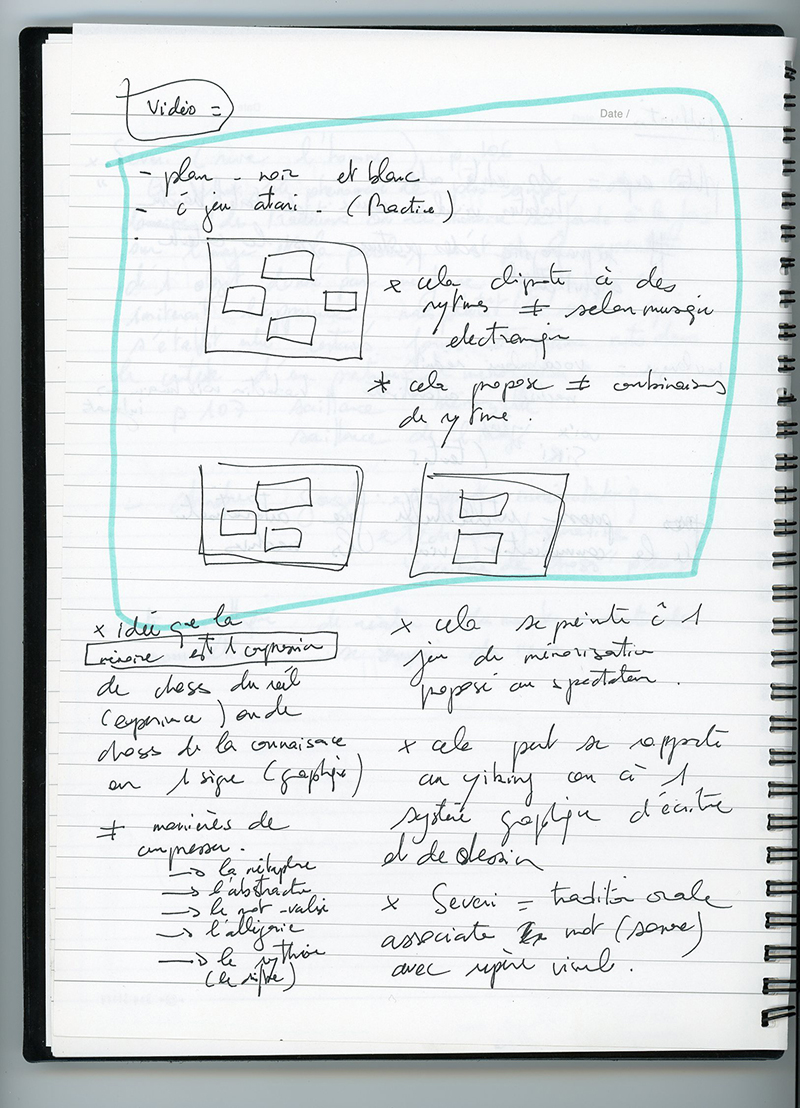 Vidéo =
Date /
- plan - noir et blanc
- à jeu atari - (Practive)
x cela clignote à des
rytmes ≠ selon musique
electronique
* cela propose ≠ combinaisons
de rytme.
x idée que la
mémoire est 1 compression
de choses du réel
(experience) ou de
choses de la connaissance
en 1 signe (graphique)
≠ manières de
compresser.
→ la métaphore
→ l'abstracte
→ le mot-valise
→ l'allégorie
→ le rythme
x cela se prête à 1
jeu de mémorisation
proposé au spectateur.
x cela peut se rapporter
au yiking ou à 1
système graphique d'écriture
et de dessin
x Severi = tradition orale
associate mot (sonore)
avec repère visuel.